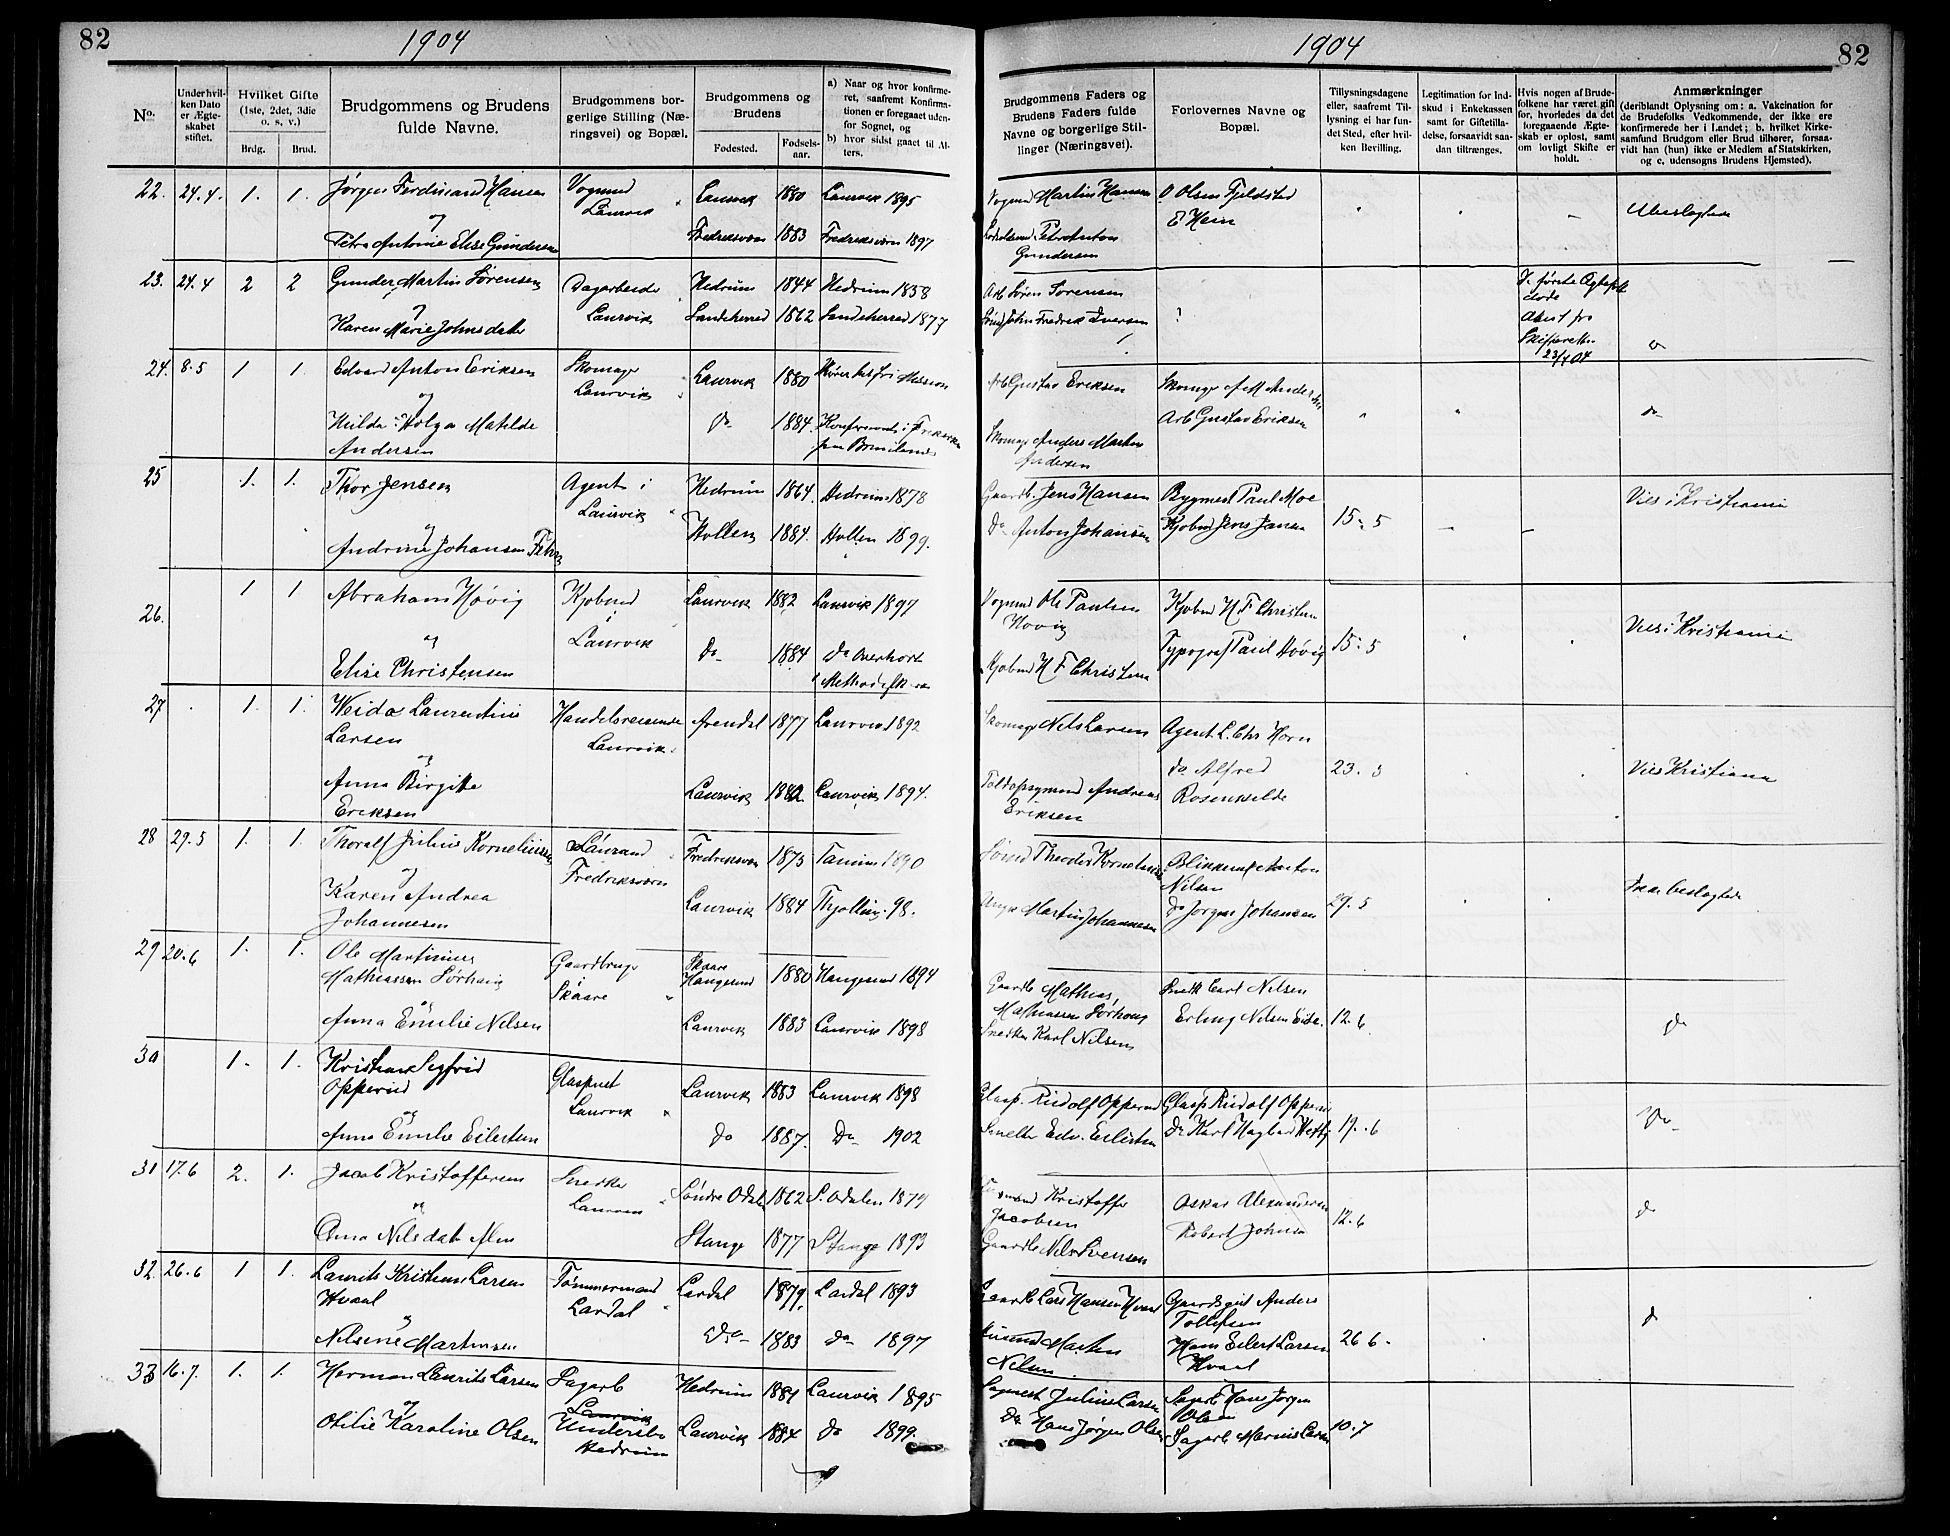 82
1904
No.
Under hvil-
ken Dato
er Ægte-
skabet
stiftet.
Hvilket Gifte
(1ste, 2det, 3die
o. s. v.)
Brdg.
Brud.
Brudgommens og Brudens
fulde Navne.
Brudgommens bor-
gerlige Stilling (Næ-
ringsvei) og Bopæl.
Brudgommens og
Brudens
Fødested.
Fødsels-
aar.
a) Naar og hvor konfirme-
ret, saafremt Konfirma-
tionen er foregaaet uden-
for Sognet, og
b) hvor sidst gaaet til Al-
ters.
22. 24.4. 1. 1. Jørgen Ferdinand Hansen Vognmd Laurvik Laurvik 1880 Laurvik 1895
og
Petra Antonie Elise Gundersen Fredriksværn 1883 Fredriksværn 1897
23. 24.4 2 2 Gunder Martin Sørensen Dagarbeider Hedrum 1844 Hedrum 1858
og Laurvik
Karen Marie Johnsdatter Sandeherred 1862 Sandeherred 1877
24. 8.5 1 1. Edvard Anton Eriksen Skomager Laurvik 1880
og Laurvik
Hilda Helga Matilde do 1884.
Andersen
25 1. 1. Thor Jensen Agent i Hedrum 1864. Hedrum 1878
og Laurvik
Andrine Johansen Hollen 1884. Hollen 1899.
26. 1 1 Abraham Høvig Kjøbmd Laurvik 1882 Laurvik 1897
og Laurvik
Elise Christensen Do 1884 Do
27 1. 1. Weida Laurentius Handelsreisende Arendal 1877 Laurvik 1892
Larsen Laurvik
og
Anna Birgitte Laurvik 1882 Laurvik 1894.
Eriksen
28 29.5 1. 1. Thoralf Julius Kornelius Fredriksværn 1875 Tanum 1890
og Fredriksværn
Karen Andrea Laurvik 1884 Thjølling 98.
Johannesen
29 20.6 1. 1. Ole Martinius Gaardbruger Skaare
Mathiassen Sørhaug Skaare Haugesund 1880 Haugesund 1894
og
Anna Emilie Nilsen Laurvik 1883 Laurvik 1898
30 1. 1. Kristian Sigfrid
Opperud Glaspust Laurvik 1883 Laurvik 1898
og Laurvik
Anna Emilie Eilertsen Do 1887. Do 1902
31 17.6 2. 1. Jacob Kristoffersen Snedker Søndre Odalen 1862 S. Odalen 1879
og Laurvik
Anna Nilsdatter Stange 1877 Stange 1893
32. 26.6 1 1. Laurits Kristian Larsen Tømmermand Lardal 1879. Lardal 1893
Hvaal Lardal
og
Nilsine Martinsen Do 1883 Do 1897
33 16.7. 1. 1. Herman Laurits Larsen Sagarb Hedrum 1881 Laurvik 1895
og Laurvik
Otilie Karoline Olsen Undersbo Laurvik 1884 do 1899.
Hedrum
1904
82
Brudgommens Faders og
Brudens Faders fulde
Navne og borgerlige Stil-
linger (Næringsvei).
Forlovernes Navne og
Bopæl.
Tillysningsdagene
eller, saafremt Til-
lysning ei har fun-
det Sted, efter hvil-
ken Bevilling.
Legitimation for Ind-
skud i Enkekassen
samt for Giftetilla-
delse, forsaavidt saa-
dan tiltrænges.
Hvis nogen af Brude-
folkene har været gift
før, hvorledes da det
foregaaende Ægte-
skab er opløst, samt
om lovligt Skifte er
holdt.
Anmærkninger
(deriblandt Oplysning om: a. Vakcination for
de Brudefolks Vedkommende, der ikke ere
konfirmerede her i Landet; b. hvilket Kirke-
samfund Brudgom eller Brud tilhører, forsaa-
vidt han (hun) ikke er Medlem af Statskirken,
og c. udensogns Brudens Hjemsted).
Vognmd Martin Hansen O Olsen Fjeldsted Ubeslægtede
E Hein
Petr Anton
Gundersen
Arb Søren Sørensen
John Fredrik Iversen
Attest fra
Skifteretten
23/4 04
Arb Gustav Eriksen Skomager A M Andersen do
Arb Gustav Eriksen
Skomager Anders Martin
Andersen
Gaardb. Jens Hansen Bygmest Paul Moe Vies i Kristiania
Do Anton Johansen Kjøbmd Jens Jansen 15.5
Vognmd Ole Paulsen Kjøbmd H F Christensen Vies i Kristiania
Høvig Typograf Paul Høvig 15.5
Kjøbmd H F Christensen
Skomager Nils Larsen Agent L. Chr Horn
do Alfred 23.5 Vies Kristiania
Toldopsynsmd Andreas Rosenkilde
Eriksen
Theodor Kornelius Blikkensl Anton
Nilsen Ikke beslægtede
Martin Johannesen do Jørgen Johansen 29.5
Gaardb Mathias Snedk Carl Nilsen
Mathiassen Sørhaug Erling Nilsen Eide. 12.6. do
Snedker Karl Nilsen
Glasp. Rudolf Opperud Glasp Rudolf Opperud Do
Smelter Edv. Eilertsen Do Karl Hagbart 19.6
Kristoffer Oskar Alexandersen
Jacobsen Robert Johnsen 12.6 do
Gaardb Nels Svensen
Gaardb Lars Hansen Hvaal Gaardsgut Anders
Tollefsen do
Martin Hans Eilert Larsen 26 6.
Nilsen Hvaal
Julius Larsen Sagarb Hans Jørgen
Olsen
Do Hans Jørgen Olsen Sagarb Marius Larsen 10.7